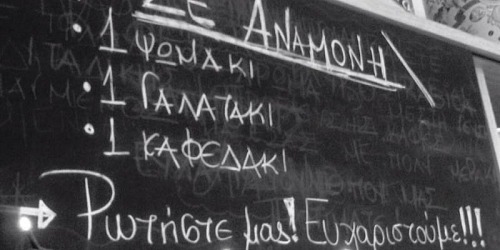 ΣΕ ΑΝΑΜΟΝΗ
• 1 ΨΩΜΑΚΙ
• 1 ΓΑΛΑΤΑΚΙ
• 1 ΚΑΦΕΔΑΚΙ
→ Ρωτήστε μας! Ευχαριστούμε!!!